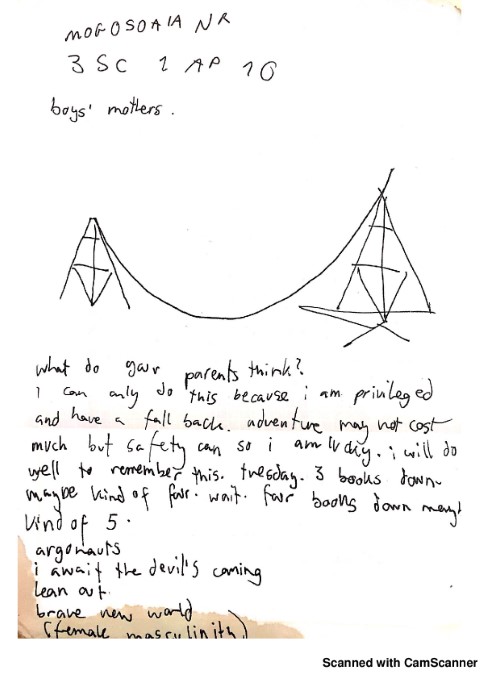 MOGOSOAIA NR
3 SC 1 AP 10
boys' mothers.
what do your parents think?
i can only do this because i am privileged
and have a fall back. adventure may not cost
much but safety can so i am lucky. i will do
well to remember this. tuesday. 3 books down.
maybe kind of four. wait. four books down maybe
kind of 5.
argonauts
i await the devil's coming
lean out
brave new world
(female masculinity)
Scanned with CamScanner